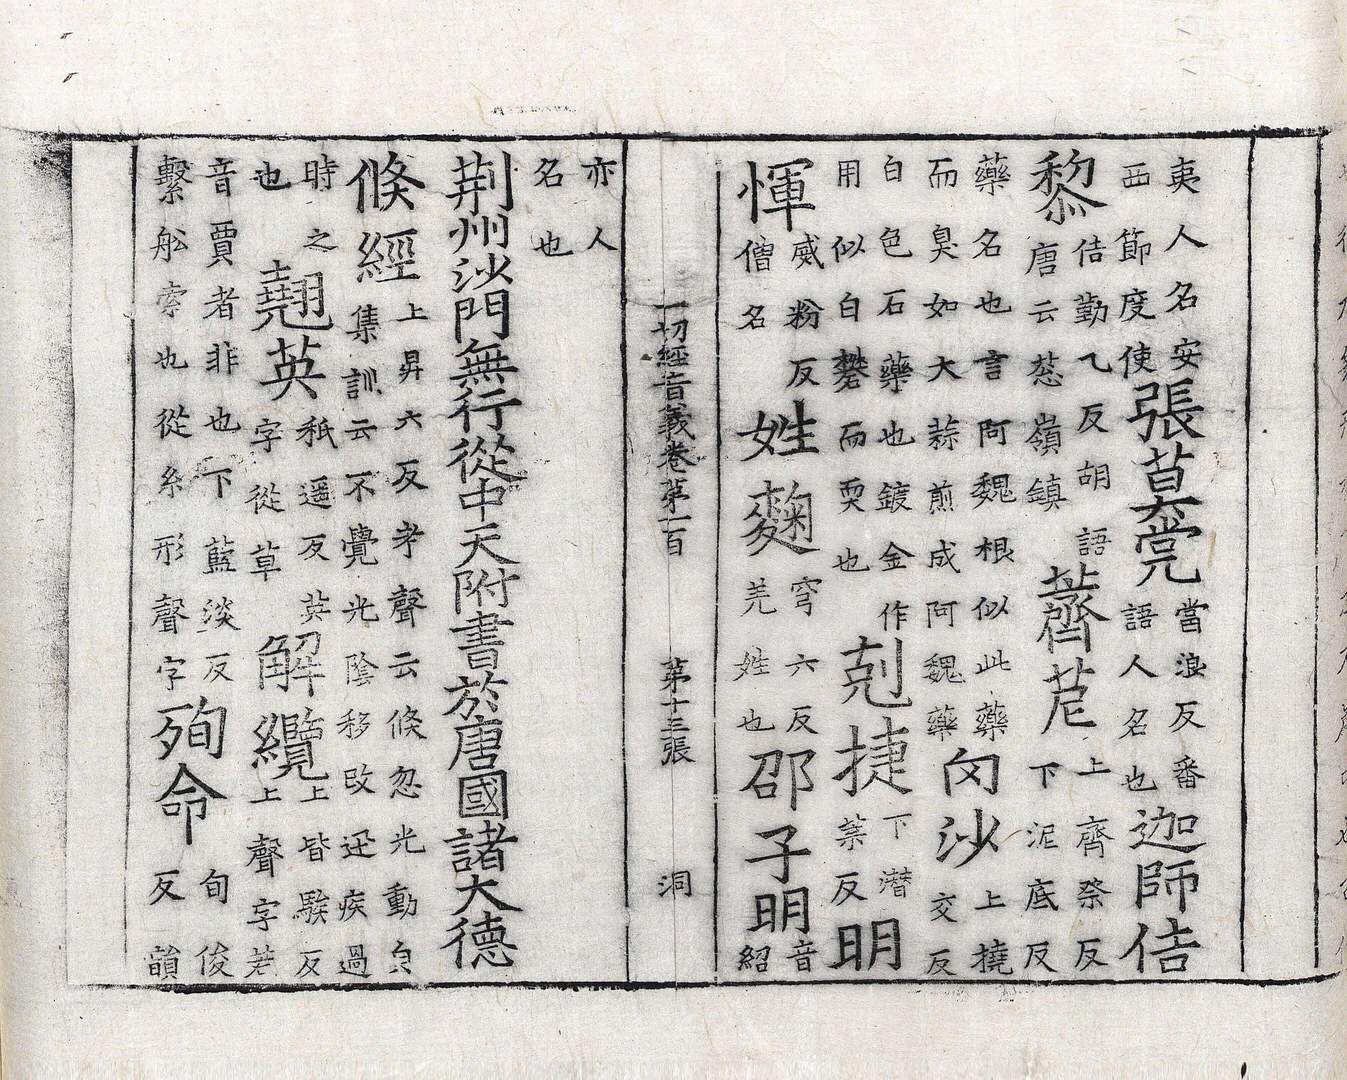 夷人名安西節度使張莫党當浪反番語人名也迦師佶
黎佶勤乙反胡語唐云葱嶺鎮薺苨上齊祭反下泥底反
藥名也言阿魏根似此藥而臭如大蒜煎成阿魏藥沙上撓交反
白色石藥也鍍金作用似白礬而耎也剋捷下潜葉反明
惲威粉反僧名姓麴穹六反羌姓也邵子明音紹
一切經音義卷第一百 第十三張 洞
亦人名也
荆州沙門無行從中天附書於唐國諸大德
倏經上昇六反考聲云倏忽光動皃集訓云不覺光陰移改迅疾過
時之也翹英祇遥反英字從草解纜上皆騃反上聲字若
音賈者非也下藍淡反繫舩索也從糸形聲字殉命旬俊反韻